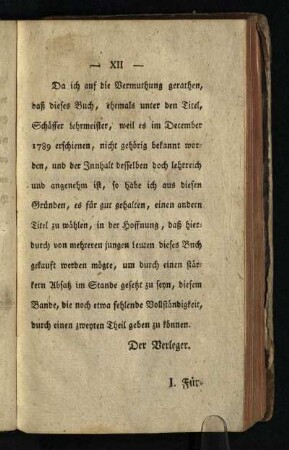 — XII —
Da ich auf die Vermuthung gerathen,
daß dieses Buch, ehemals unter den Titel,
Schäffer lehrmeister, weil es im December
1789 erschienen, nicht gehörig bekannt wor-
den, und der Innhalt desselben doch lehrreich
und angenehm ist, so habe ich aus diesen
Gründen, es für gut gehalten, einen andern
Titel zu wählen, in der Hoffnung, daß hier-
durch von mehreren jungen leuten dieses Buch
gekauft werden mögte, um durch einen stär-
kern Absatz im Stande gesetzt zu seyn, diesem
Bande, die noch etwa fehlende Vollständigkeit,
durch einen zweyten Theil geben zu können.
Der Verleger.
I. Für-